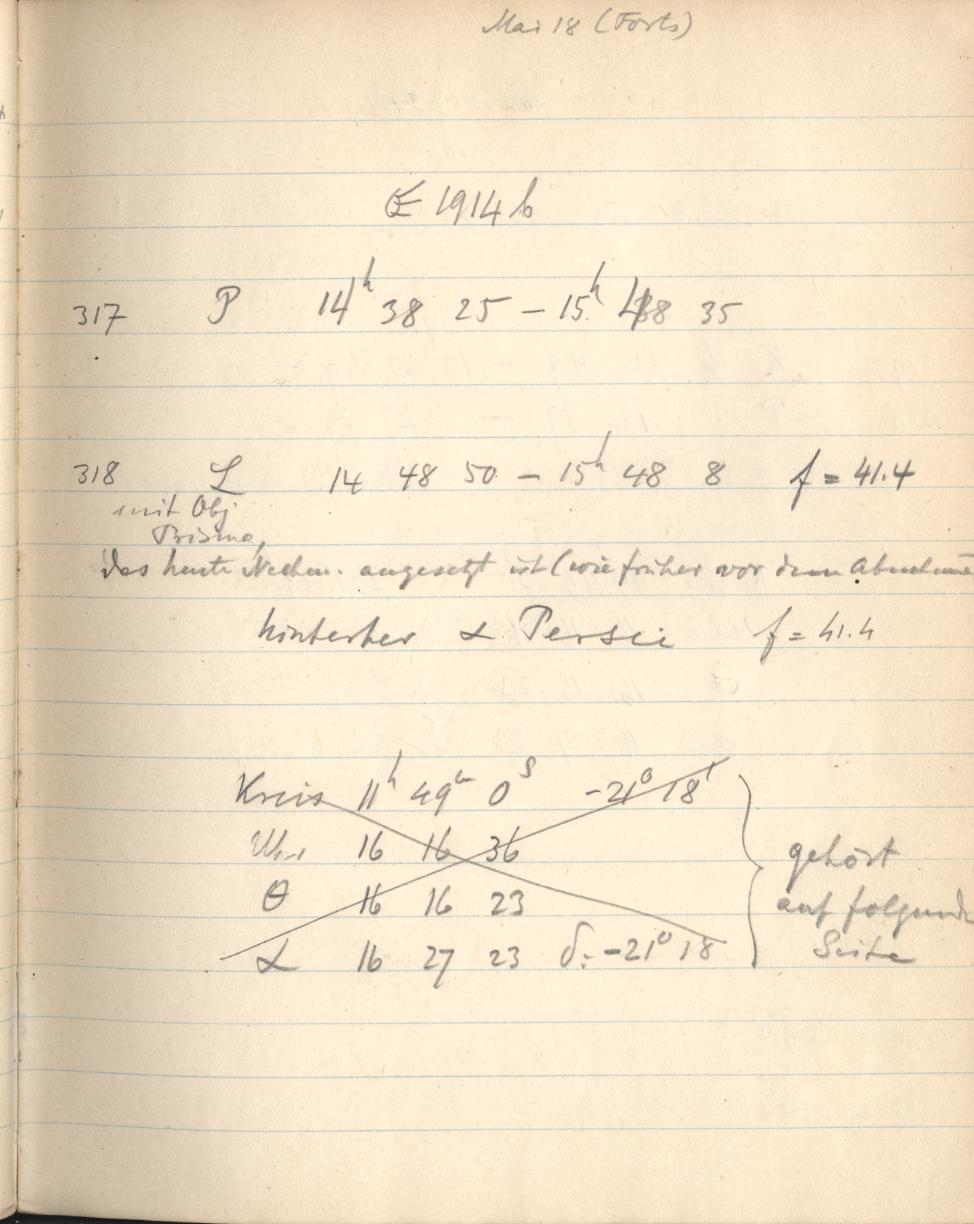 Mai 18 (Forts)
1914 b
317 P 14h 38 25 – 15h 48 35
318 L 14 48 50 – 15h 48 8 f = 41.4
mit Obj
Prisma,
das heute Nachm. angesetzt ist (wie früher vor dem Abnehmen
hinterher α Persei f = 41.4
Kreis 11h 49m 0s -21° 18'
Uhr 16 16 36 gehört
θ 16 16 23 auf folgende
α 16 27 23 δ: -21° 18 Seite